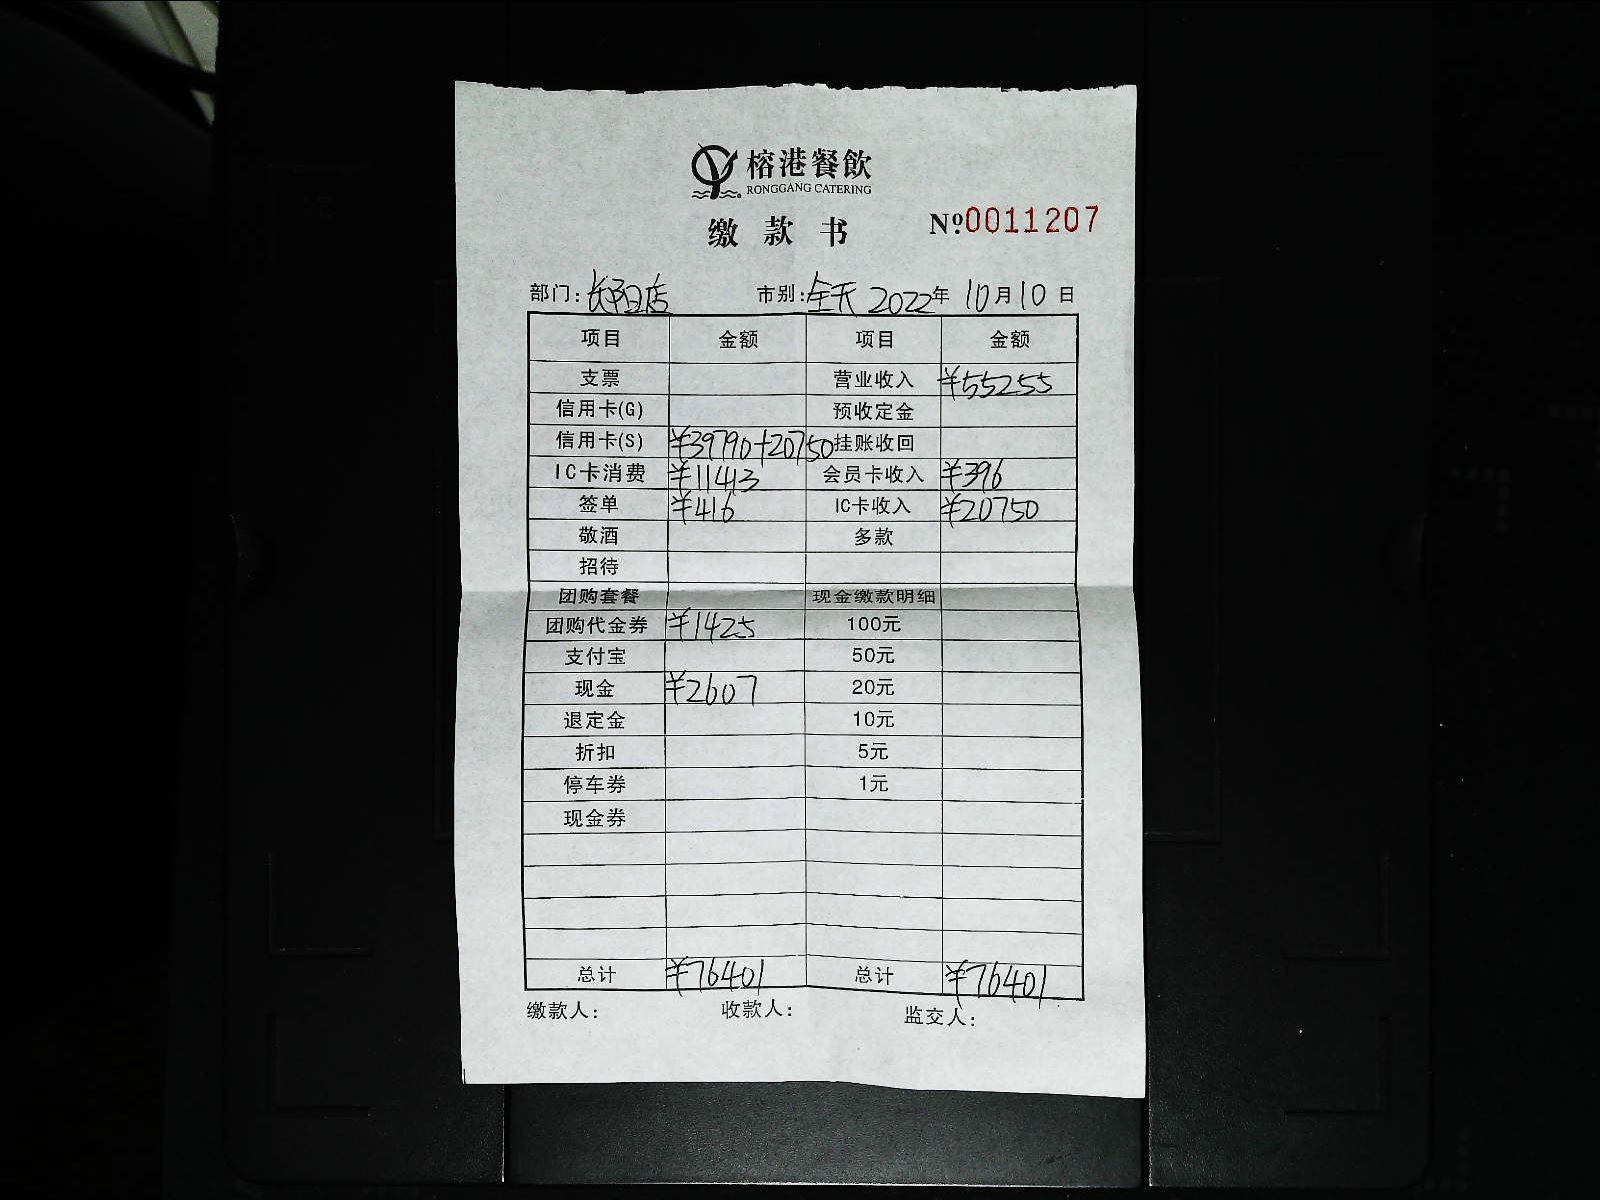 榕港餐飲
RONGGANG CATERING
缴款书 №0011207
部门:长阳店 市别:全天 2022年10月10日
项目 金额 项目 金额
支票 营业收入 ¥55255
信用卡(G) 预收定金
信用卡(S) ¥39790+20750 挂账收回
IC卡消费 ¥11413 会员卡收入 ¥396
签单 ¥416 IC卡收入 ¥20750
敬酒 多款
招待
团购套餐 现金缴款明细
团购代金券 ¥1425 100元
支付宝 50元
现金 ¥2607 20元
退定金 10元
折扣 5元
停车券 1元
现金券
总计 ¥76401 总计 ¥76401
缴款人: 收款人: 监交人: